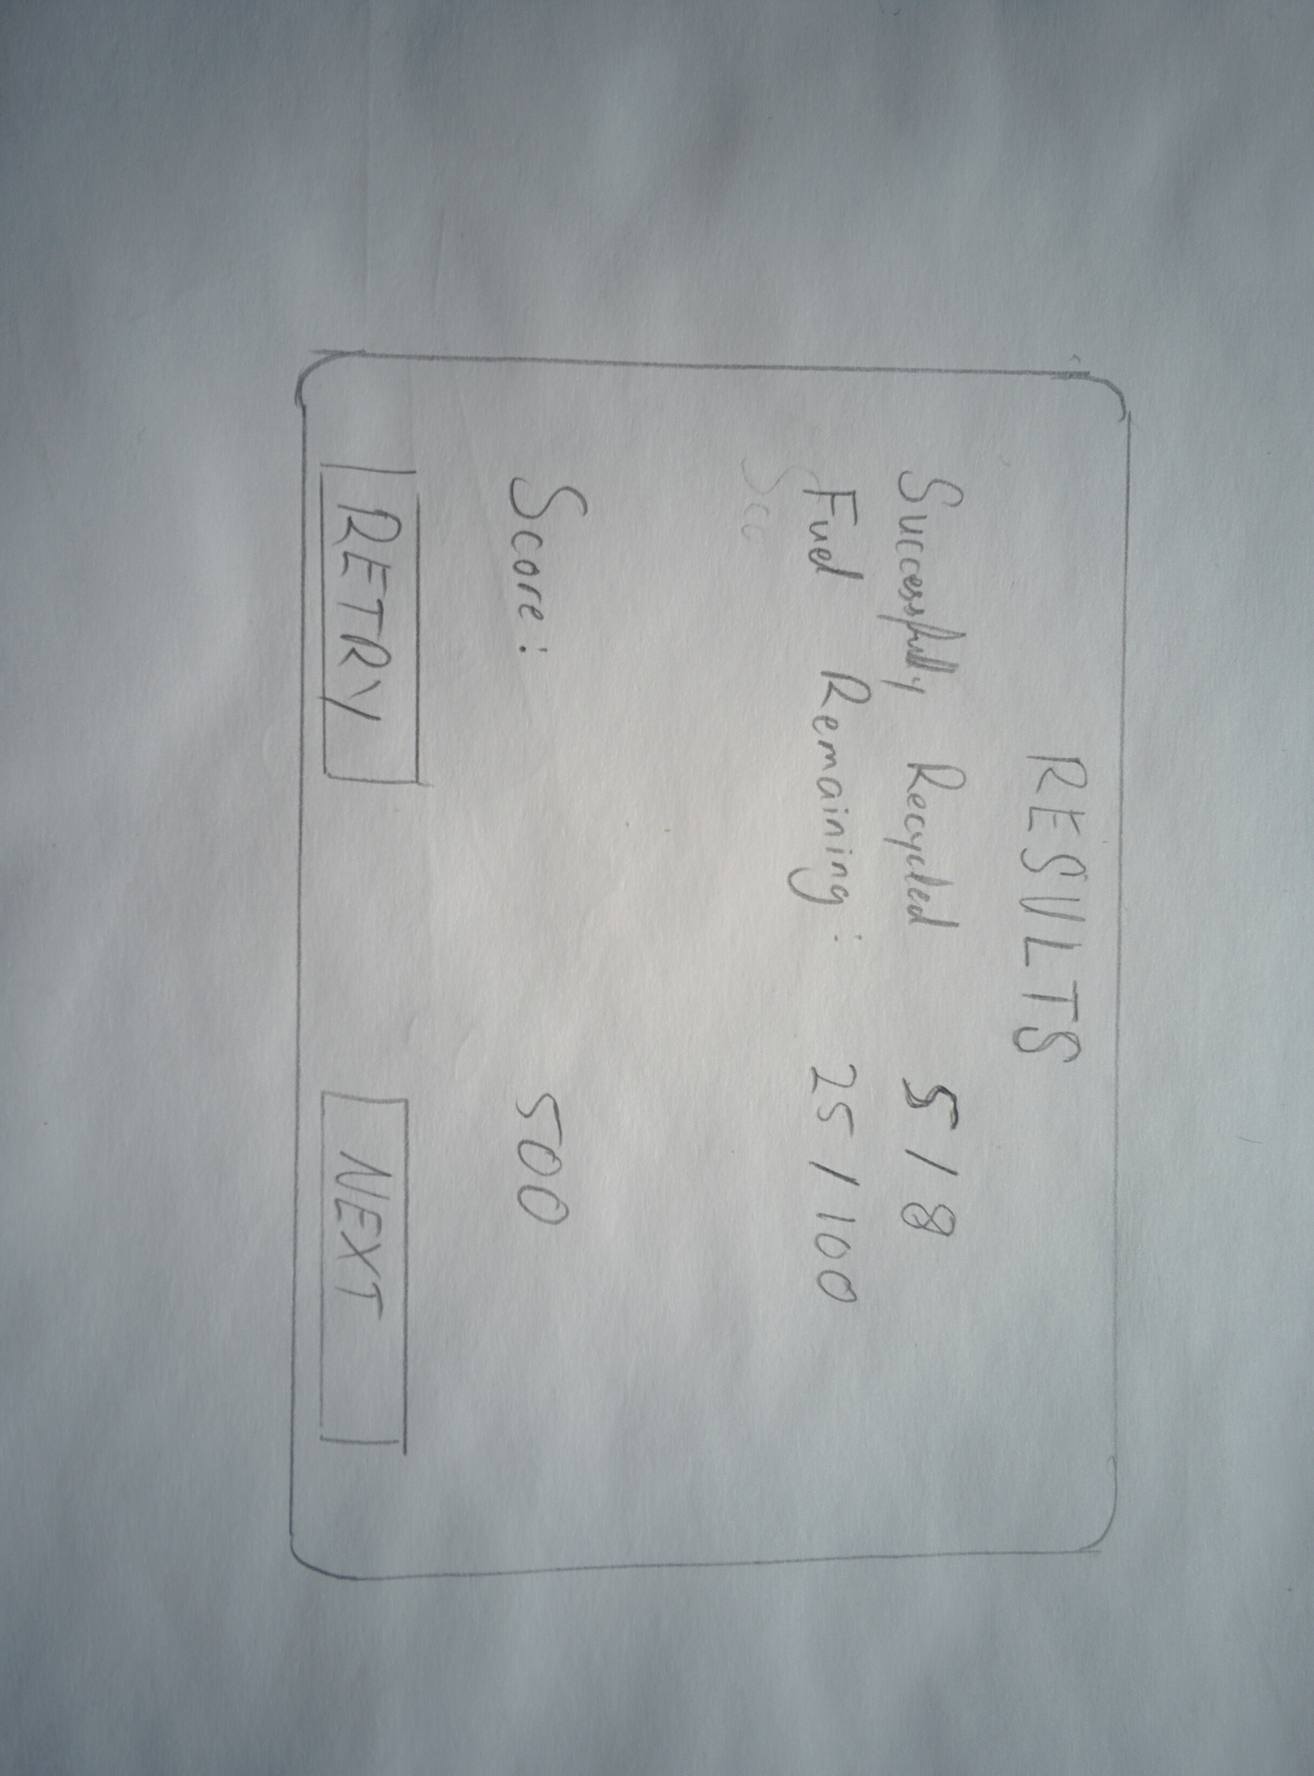 RESULTS
Successfully Recycled 5/8
Fuel Remaining: 25/100
Sco
Score: 500
RETRY NEXT